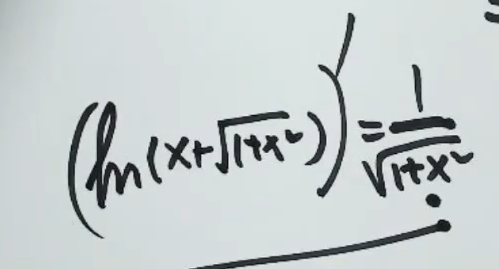 (ln(x+√(1+x²)))′ = 1/√(1+x²)